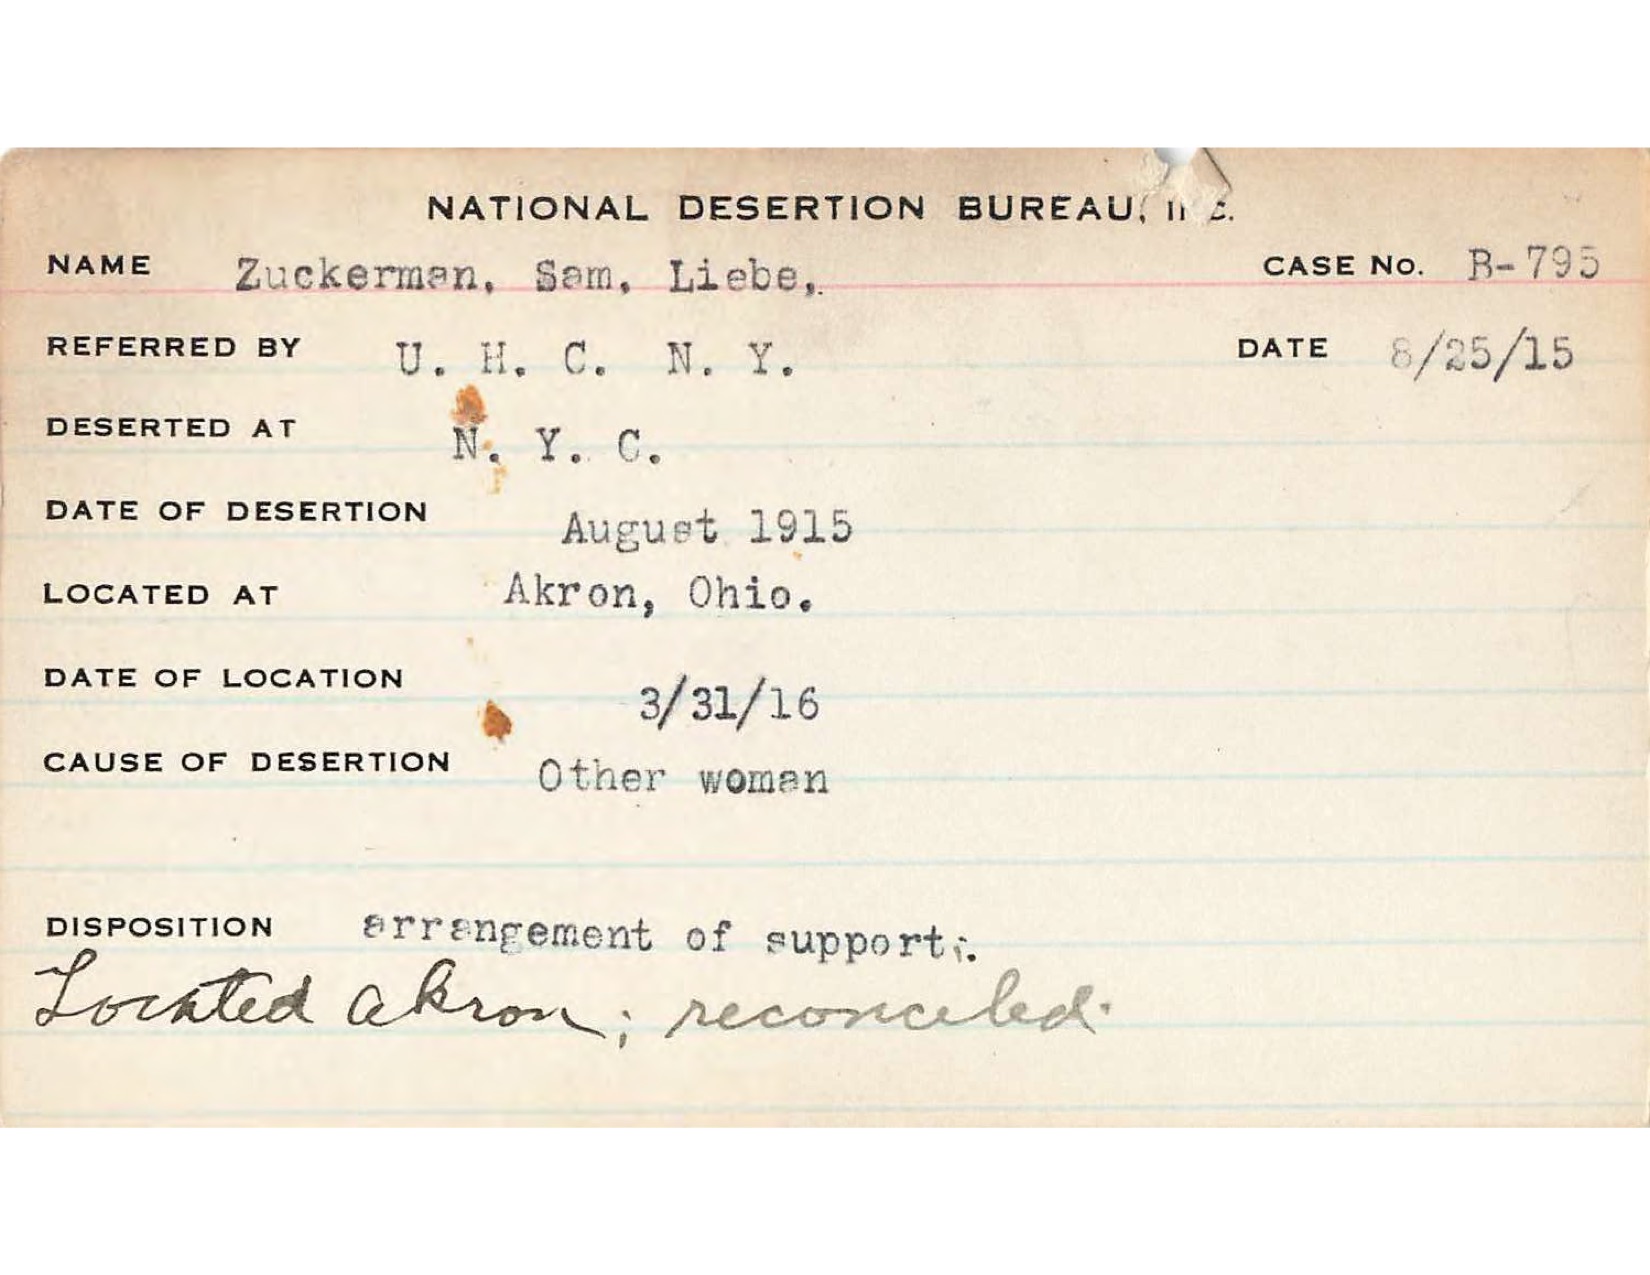 NATIONAL DESERTION BUREAU, INC.
NAME Zuckerman, Sam, Liebe, CASE No. B-795
REFERRED BY U. H. C. N. Y. DATE 8/25/15
DESERTED AT N. Y. C.
DATE OF DESERTION August 1915
LOCATED AT Akron, Ohio.
DATE OF LOCATION 3/31/16
CAUSE OF DESERTION Other woman
DISPOSITION arrangement of support;.
Located Akron; reconciled.